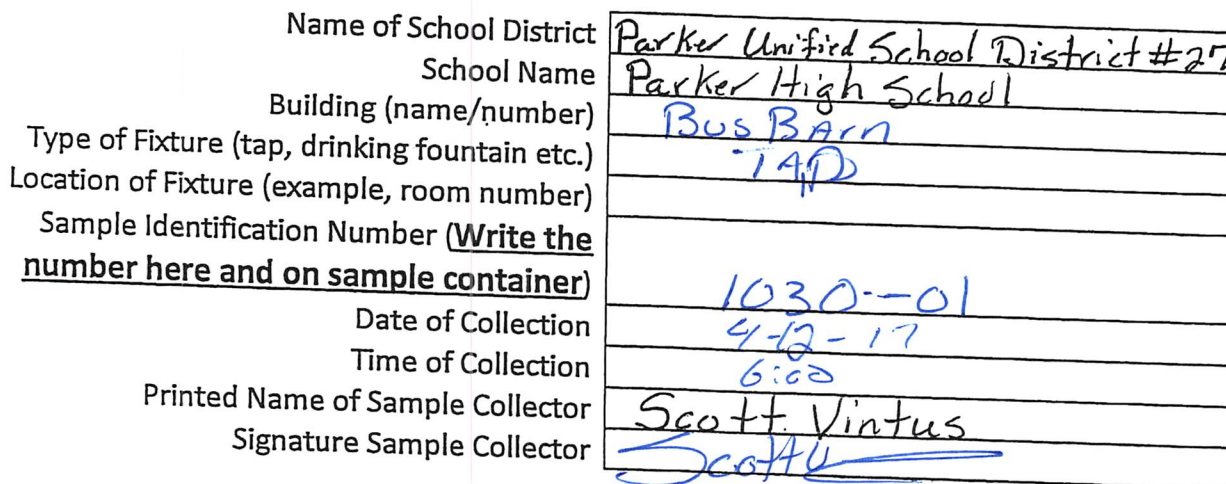 Name of School District Parker Unified School District #27
School Name Parker High School
Building (name/number) Bus Barn
Type of Fixture (tap, drinking fountain etc.) TAP
Location of Fixture (example, room number)
Sample Identification Number (Write the
number here and on sample container) 1030--01
Date of Collection 4-12-17
Time of Collection 6:00
Printed Name of Sample Collector Scott Vintus
Signature Sample Collector Scott V